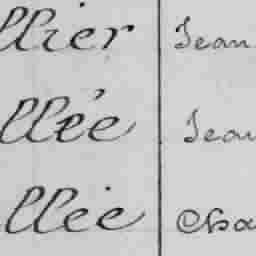 llier Jean
llée Jean
llie Cha